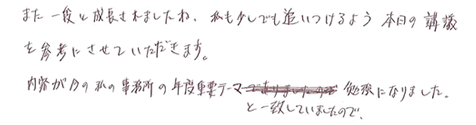 また一段と成長されましたね。私も少しでも追いつけるよう本日の講議
を参考にさせていただきます。
内容が今の私の事務所の年度重要テーマでありましたので 勉強になりました。
と一致していましたので、